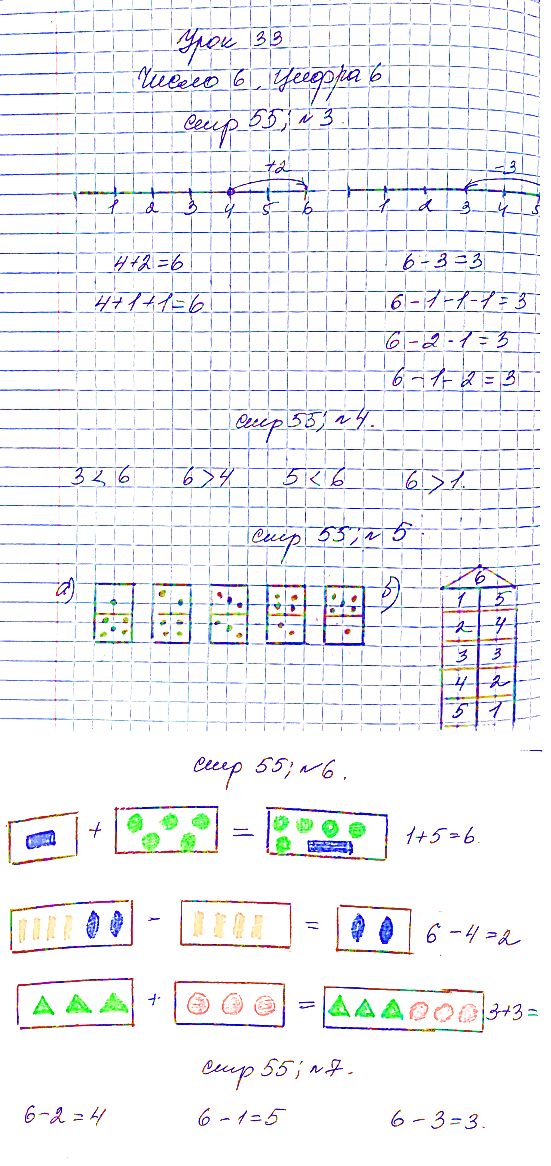 Урок 33
Число 6, Цифра 6
стр 55; №3.
+2 -3
1 2 3 4 5 6 1 2 3 4 5
4+2=6 6-3=3
4+1+1=6 6-1-1-1=3
6-2-1=3
6-1-2=3
стр 55; №4.
3<6 6>4 5<6 6>1.
стр 55; №5
а) б) 6
1 5
2 4
3 3
4 2
5 1
стр 55; №6.
+ = 1+5=6.
- = 6-4=2
+ = 3+3=
стр 55; №7.
6-2=4 6-1=5 6-3=3.